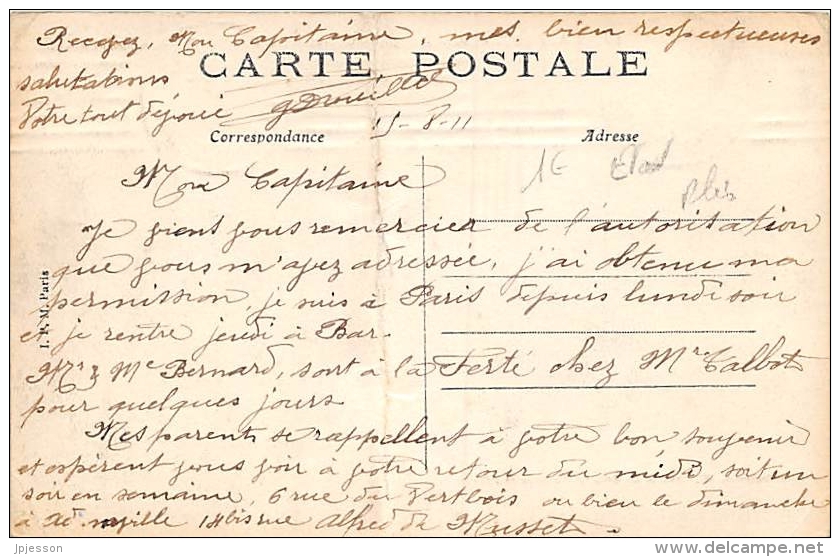 Recevez, Mon Capitaine, mes bien respectueuses
salutations
CARTE POSTALE
Votre tout dévoué
15-8-11
Correspondance
Adresse
1€ Etat
plis
Mon Capitaine
Je viens vous remercier de l'autorisation
que vous m'avez adressée, j'ai obtenu ma
permission, je suis à Paris depuis lundi soir
et je rentre jeudi à Bar.
Mr & Me Bernard, sont à la Ferté chez Mr Talbot
pour quelques jours.
Mes parents se rappellent à votre bon souvenir
et espèrent vous voir à votre retour du midi, soit un
soir en semaine, 6 rue du Vertbois ou bien le dimanche
à 14 bis rue Alfred de Musset.
I. P. M. Paris
jpjesson
delcampe.net